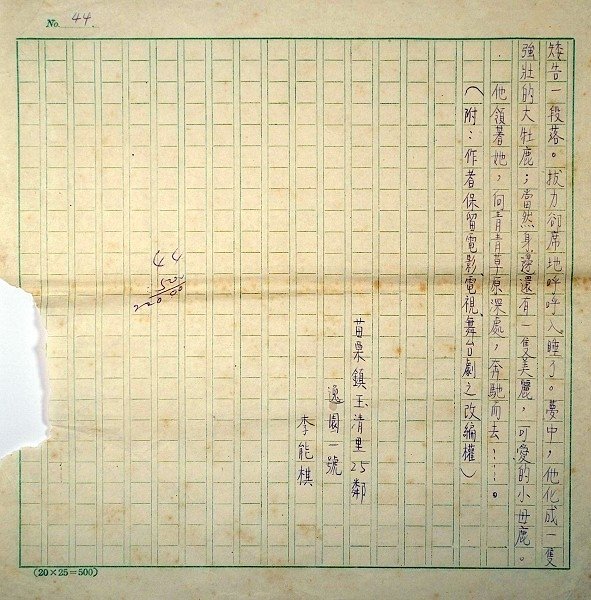 No. 44
矮告一段落。拔力卻席地呼呼入睡了。夢中,他化成一隻
強壯的大牡鹿;當然身邊還有一隻美麗,可愛的小母鹿。
他領著她,向青青草原深處,奔馳而去……。
(附:作者保留電影、電視、舞台劇之改編權)
苗栗鎮玉清里25鄰
逸園一號
李能棋
44
500
22000
(20×25=500)